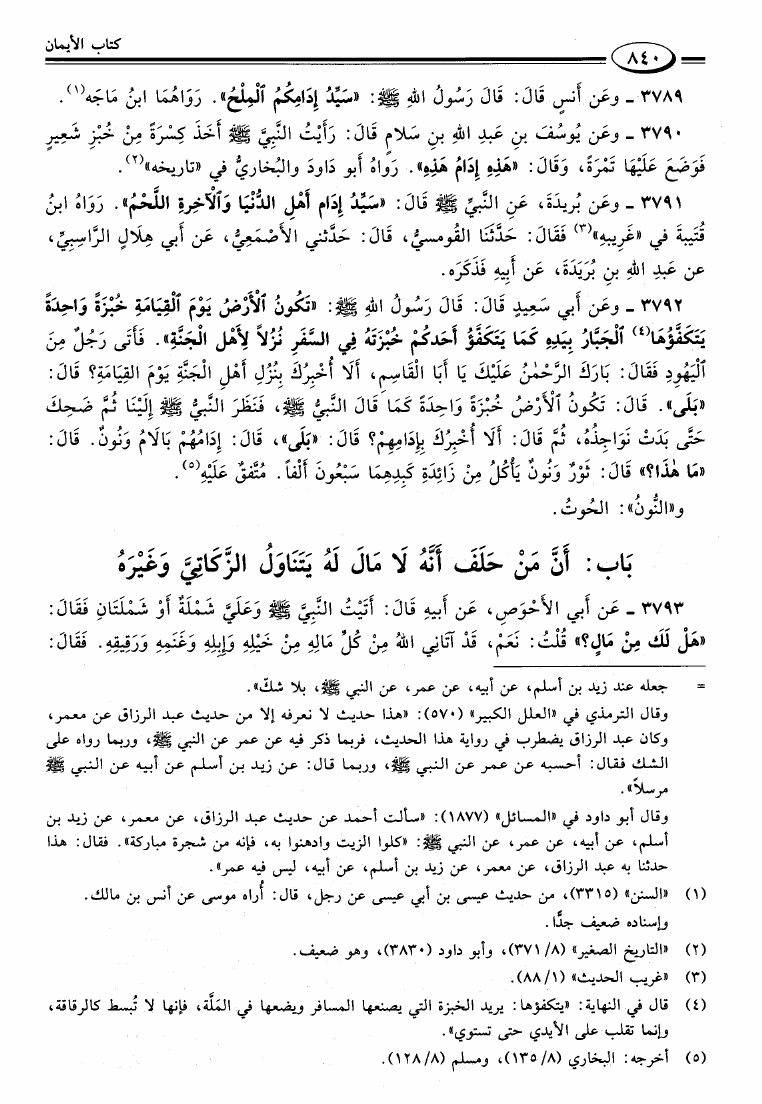 كتاب الأيمان
٨٤٠
٣٧٨٩ ـ وعَن أَنسٍ قَالَ: قَالَ رَسُولُ اللهِ ﷺ: «سَيِّدُ إِدَامِكُمُ ٱلْمِلْحُ». رَوَاهُمَا ابنُ مَاجَه(١).
٣٧٩٠ ـ وعَن يُوسُفَ بنِ عَبدِ اللهِ بنِ سَلَامٍ قَالَ: رَأَيْتُ النَّبِيَّ ﷺ أَخَذَ كِسْرَةً مِنْ خُبْزِ شَعِيرٍ
فَوَضَعَ عَلَيْهَا تَمْرَةً، وَقَالَ: «هَذِهِ إِدَامُ هَذِهِ». رَوَاهُ أَبو دَاودَ والبُخاريُّ في «تاريخه»(٢).
٣٧٩١ ـ وعَن بُريدَةَ، عَنِ النَّبيِّ ﷺ قَالَ: «سَيِّدُ إِدَامِ أَهْلِ الدُّنْيَا وَٱلْآخِرةِ اللَّحْمُ». رَوَاهُ ابنُ
قُتَيبةَ في «غَرِيبِهِ»(٣) فَقَالَ: حَدَّثَنَا القُومسيُّ، قَالَ: حَدَّثني الأَصْمَعِيُّ، عَن أَبي هِلَالٍ الرَّاسِبِيِّ،
عن عَبدِ اللهِ بنِ بُرَيَدَةَ، عَن أَبيهِ فَذَكَرَه.
٣٧٩٢ ـ وعَن أَبي سَعِيدٍ قَالَ: قَالَ رَسُولُ اللهِ ﷺ: «تَكُونُ ٱلْأَرْضُ يَوْمَ ٱلْقِيَامَةِ خُبْزَةً وَاحِدَةً
يَتَكَفَّؤُهَا(٤) ٱلْجَبَّارُ بِيَدِهِ كَمَا يَتَكَفَّؤُ أَحَدكُمْ خُبْزَتَهُ فِي السَّفَرِ نُزُلاً لِأَهْلِ الْجَنَّةِ». فَأَتَى رَجُلٌ مِنَ
ٱلْيَهُودِ فَقَالَ: بَارَكَ الرَّحْمٰنُ عَلَيْكَ يَا أَبَا الْقَاسِمِ، أَلَا أُخْبِرُكَ بِنُزُلِ أَهْلِ الْجَنَّةِ يَوْمَ الْقِيَامَةِ؟ قَالَ:
«بَلَى». قَالَ: تَكُونُ الْأَرْضُ خُبْزَةً وَاحِدَةً كَمَا قَالَ النَّبيُّ ﷺ، فَنَظَرَ النَّبِيُّ ﷺ إِلَيْنَا ثُمَّ ضَحِكَ
حَتَّى بَدَتْ نَوَاجِذُهُ، ثُمَّ قَالَ: أَلَا أُخْبِرُكَ بِإِدَامِهِمْ؟ قَالَ: «بَلَى»، قَالَ: إِدَامُهُمْ بَالَامُ وَنُونٌ. قَالَ:
«مَا هٰذَا؟» قَالَ: ثَوْرٌ وَنُونٌ يَأْكُلُ مِنْ زَائِدَةِ كَبِدِهِمَا سَبْعُونَ أَلْفاً. مُتَّفقٌ عَلَيْهِ(٥).
و«النُّونُ»: الحُوتُ.
بَاب: أَنَّ مَنْ حَلَفَ أَنَّهُ لَا مَالَ لَهُ يَتَنَاوَلُ الزَّكَاتِيَّ وَغَيْرَهُ
٣٧٩٣ ـ عَن أَبي الأَحْوَصِ، عَن أَبيهِ قَالَ: أَتَيْتُ النَّبِيَّ ﷺ وَعَلَيَّ شَمْلَةٌ أَوْ شَمْلَتَانِ فَقَالَ:
«هَلْ لَكَ مِنْ مَالٍ؟» قُلْتُ: نَعَمْ، قَدْ آتَانِي اللهُ مِنْ كُلِّ مَالِهِ مِنْ خَيْلِهِ وَإِبِلِهِ وَغَنَمِهِ وَرَقِيقِهِ. فَقَالَ:
= جعله عند زيد بن أسلم، عن أبيه، عن عمر، عن النبي ﷺ، بلا شك».
وقال الترمذي في «العلل الكبير» (٥٧٠): «هذا حديث لا نعرفه إلا من حديث عبد الرزاق عن معمر،
وكان عبد الرزاق يضطرب في رواية هذا الحديث، فربما ذكر فيه عن عمر عن النبي ﷺ، وربما رواه على
الشك فقال: أحسبه عن عمر عن النبي ﷺ، وربما قال: عن زيد بن أسلم عن أبيه عن النبي ﷺ
مرسلاً».
وقال أبو داود في «المسائل» (١٨٧٧): «سألت أحمد عن حديث عبد الرزاق، عن معمر، عن زيد بن
أسلم، عن أبيه، عن عمر، عن النبي ﷺ: «كلوا الزيت وادهنوا به، فإنه من شجرة مباركة». فقال: هذا
حدثنا به عبد الرزاق، عن معمر، عن زيد بن أسلم، عن أبيه، ليس فيه عمر».
(١) «السنن» (٣٣١٥)، من حديث عيسى بن أبي عيسى عن رجل، قال: أُراه موسى عن أنس بن مالك.
وإسناده ضعيف جدًّا.
(٢) «التاريخ الصغير» (٣٧١/٨)، وأبو داود (٣٨٣٠)، وهو ضعيف.
(٣) «غريب الحديث» (٨٨/١).
(٤) قال في النهاية: «يتكفؤها: يريد الخبزة التي يصنعها المسافر ويضعها في المَلَّة، فإنها لا تُبسط كالرقاقة،
وإنما تقلب على الأيدي حتى تستوي».
(٥) أخرجه: البخاري (١٣٥/٨)، ومسلم (١٢٨/٨).